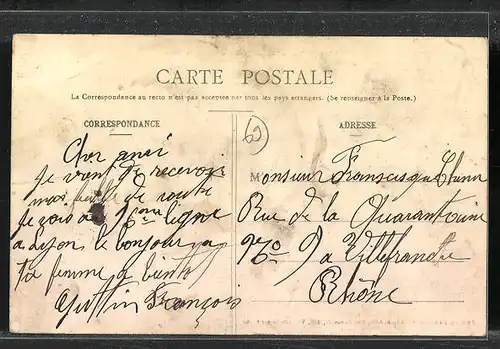 CARTE POSTALE
La Correspondance au recto n'est pas acceptée par tous les pays étrangers. (Se renseigner à la Poste.)
CORRESPONDANCE
ADRESSE
Cher ami
Je vient de recevoir
ma feuille de route
Je
ligne
a Lyon le bonjour a
ta femme a bientot
François
Monsieur
Rue de la Quarantaine
No 9 a Villefranche
Rhône